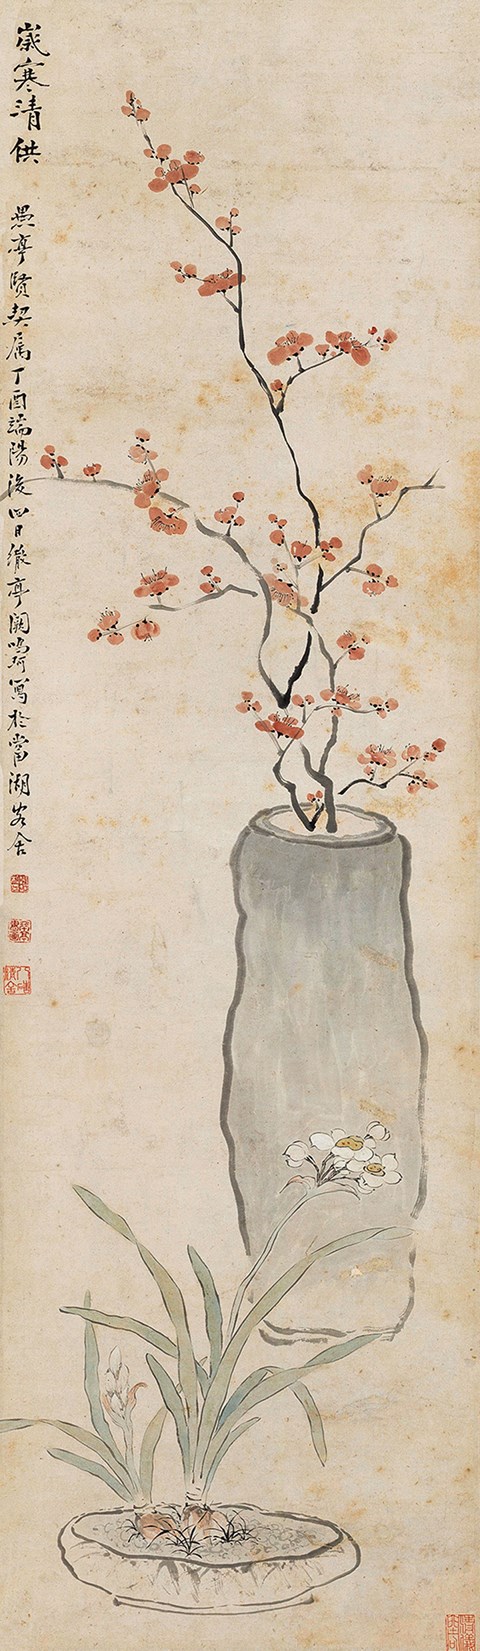 歲寒清供
愚亭賢契属丁酉端陽後四日徽亭闕鳴珂寫於當湖客舍